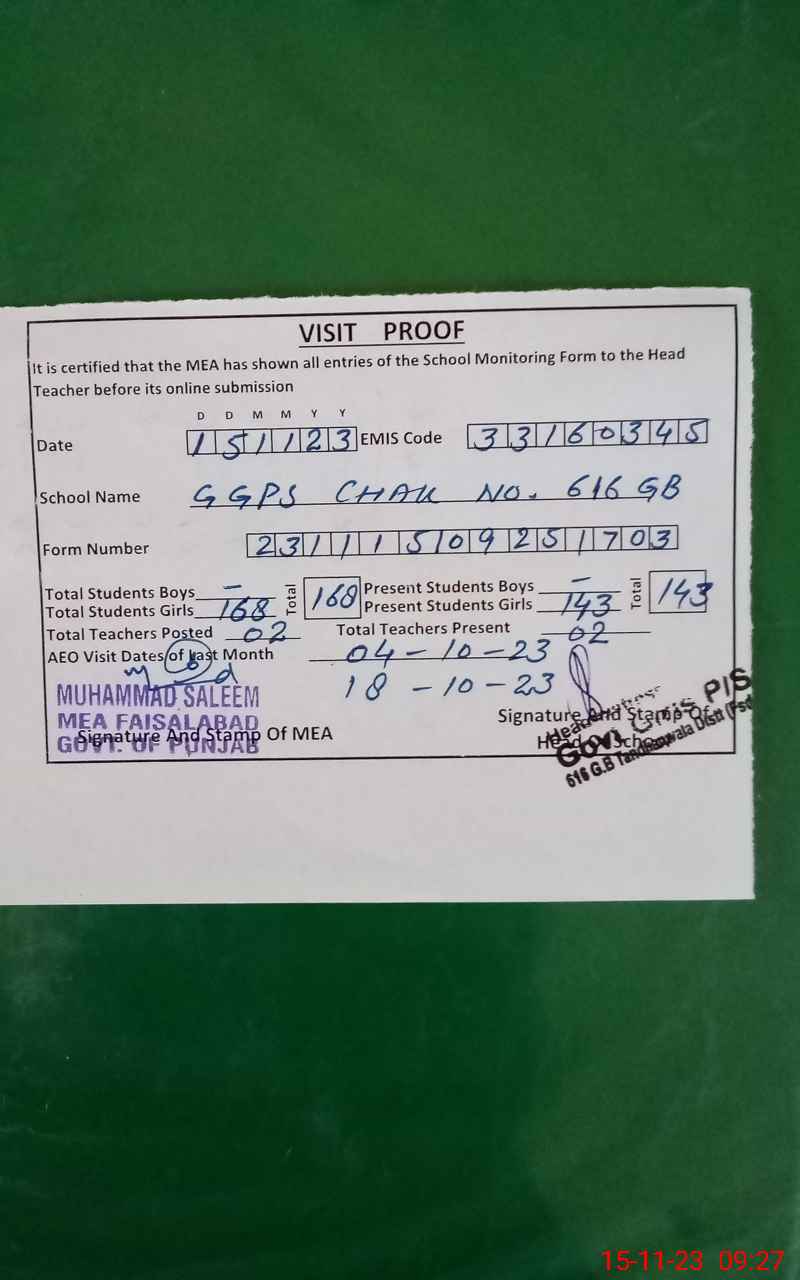 VISIT PROOF
It is certified that the MEA has shown all entries of the School Monitoring Form to the Head
Teacher before its online submission
D D M M Y Y
Date 151123 EMIS Code 33160345
School Name GGPS CHAK NO. 616 GB
Form Number 23111509251703
Total Students Boys – Total 168 Present Students Boys – Total 143
Total Students Girls 168 Present Students Girls 143
Total Teachers Posted 02 Total Teachers Present 02
AEO Visit Dates of Last Month 04-10-23
18-10-23
MUHAMMAD SALEEM
MEA FAISALABAD
GOVT. OF PUNJAB
Signature And Stamp Of MEA
Signature And Stamp Of
Head School
Govt P/S
616 G.B Tandlianwala Distt (Fsd
15-11-23 09:27